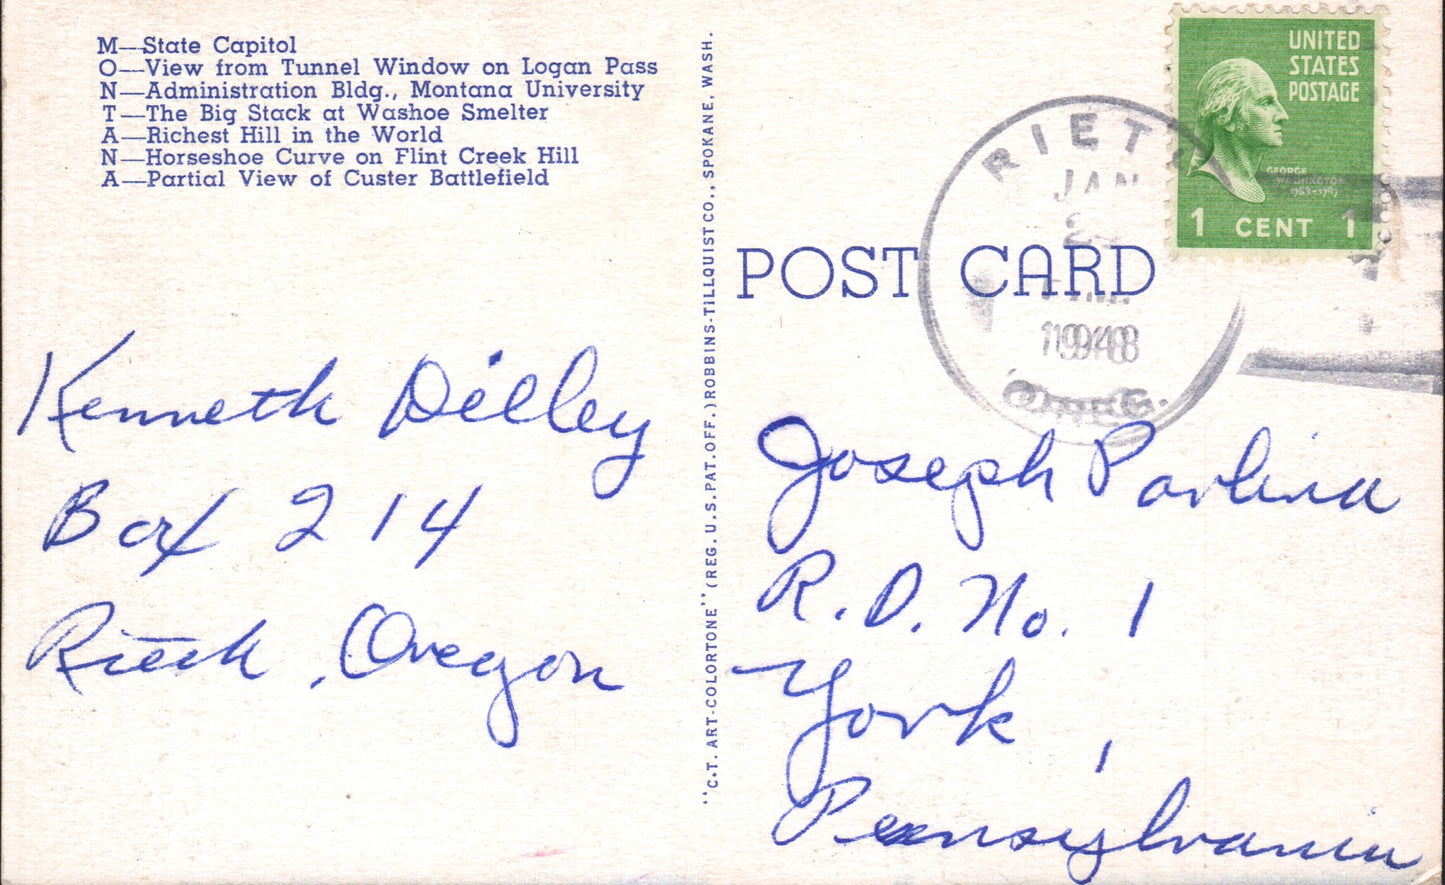 M—State Capitol
O—View from Tunnel Window on Logan Pass
N—Administration Bldg., Montana University
T—The Big Stack at Washoe Smelter
A—Richest Hill in the World
N—Horseshoe Curve on Flint Creek Hill
A—Partial View of Custer Battlefield
"C.T. ART-COLORTONE" (REG. U.S. PAT. OFF.) ROBBINS-TILLQUIST CO., SPOKANE, WASH.
UNITED
STATES
POSTAGE
GEORGE
WASHINGTON
1 CENT 1
RIETH
JAN
1948
OREG.
POST CARD
Kenneth Dilley
Box 214
Rieth, Oregon
Joseph Pavlina
R. D. No. 1
York,
Pennsylvania